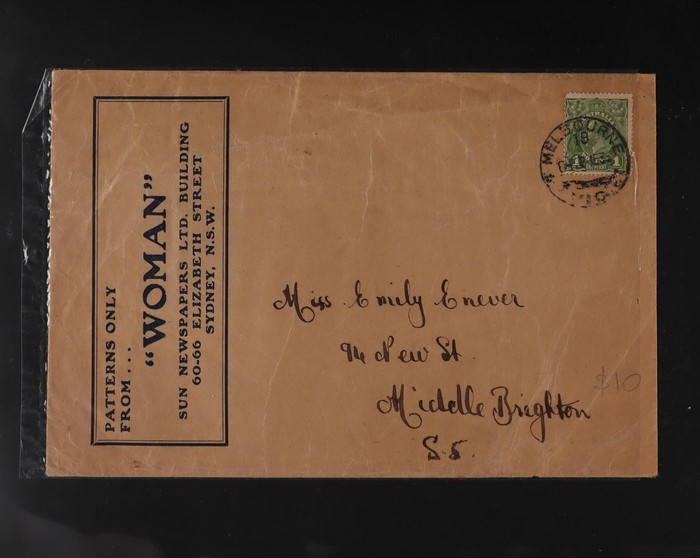 PATTERNS ONLY
FROM...
"WOMAN"
SUN NEWSPAPERS LTD. BUILDING
60-66 ELIZABETH STREET
SYDNEY, N.S.W.
MELBOURNE
18
VIC
AUSTRALIA
1
Miss Emily Enever
94 New St.
Middle Brighton
S.5.
$10